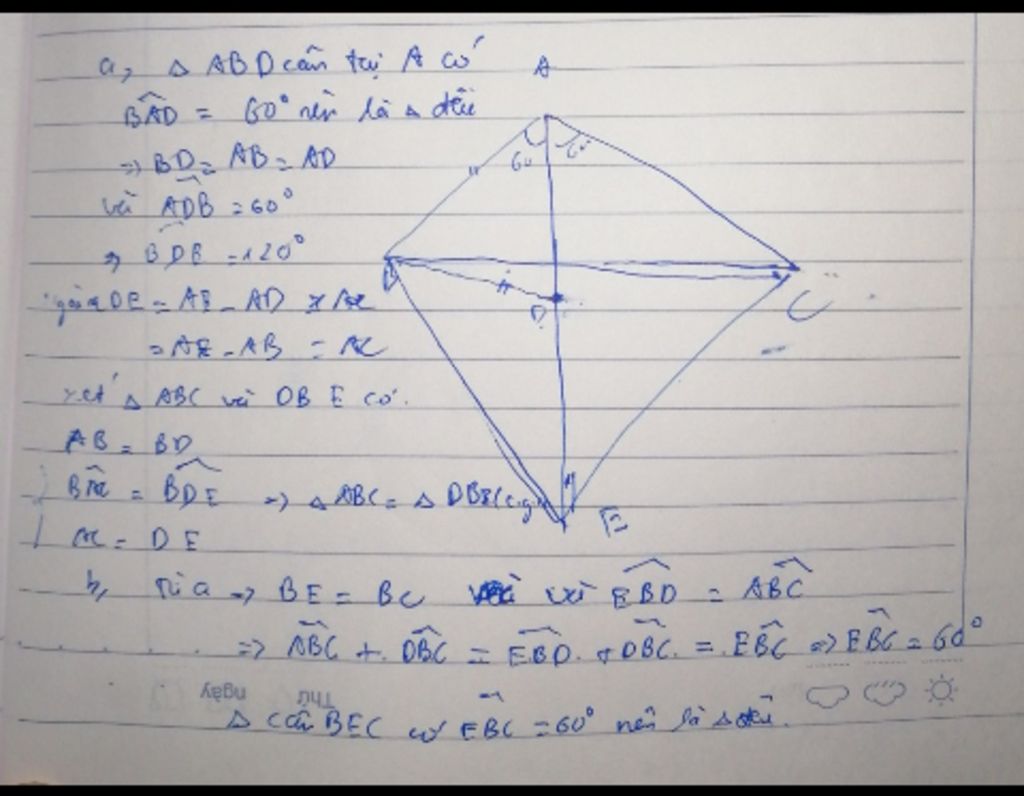 a, △ ABD cân tại A có
BAD = 60° nên là △ đều
=> BD = AB = AD
và ADB = 60°
=> BDE = 120°
DE = AE - AD
= AE - AB = AC
xét △ ABC và DBE có.
AB = BD
BAC = BDE => △ ABC = △ DBE (c.g
AC = DE
b, Từ a => BE = BC và EBD = ABC
=> ABC + DBC = EBD + DBC = EBC => EBC = 60°
△ cân BEC có EBC = 60° nên là △ đều.
A
60 60
B
D
C
E
Thứ Ngày